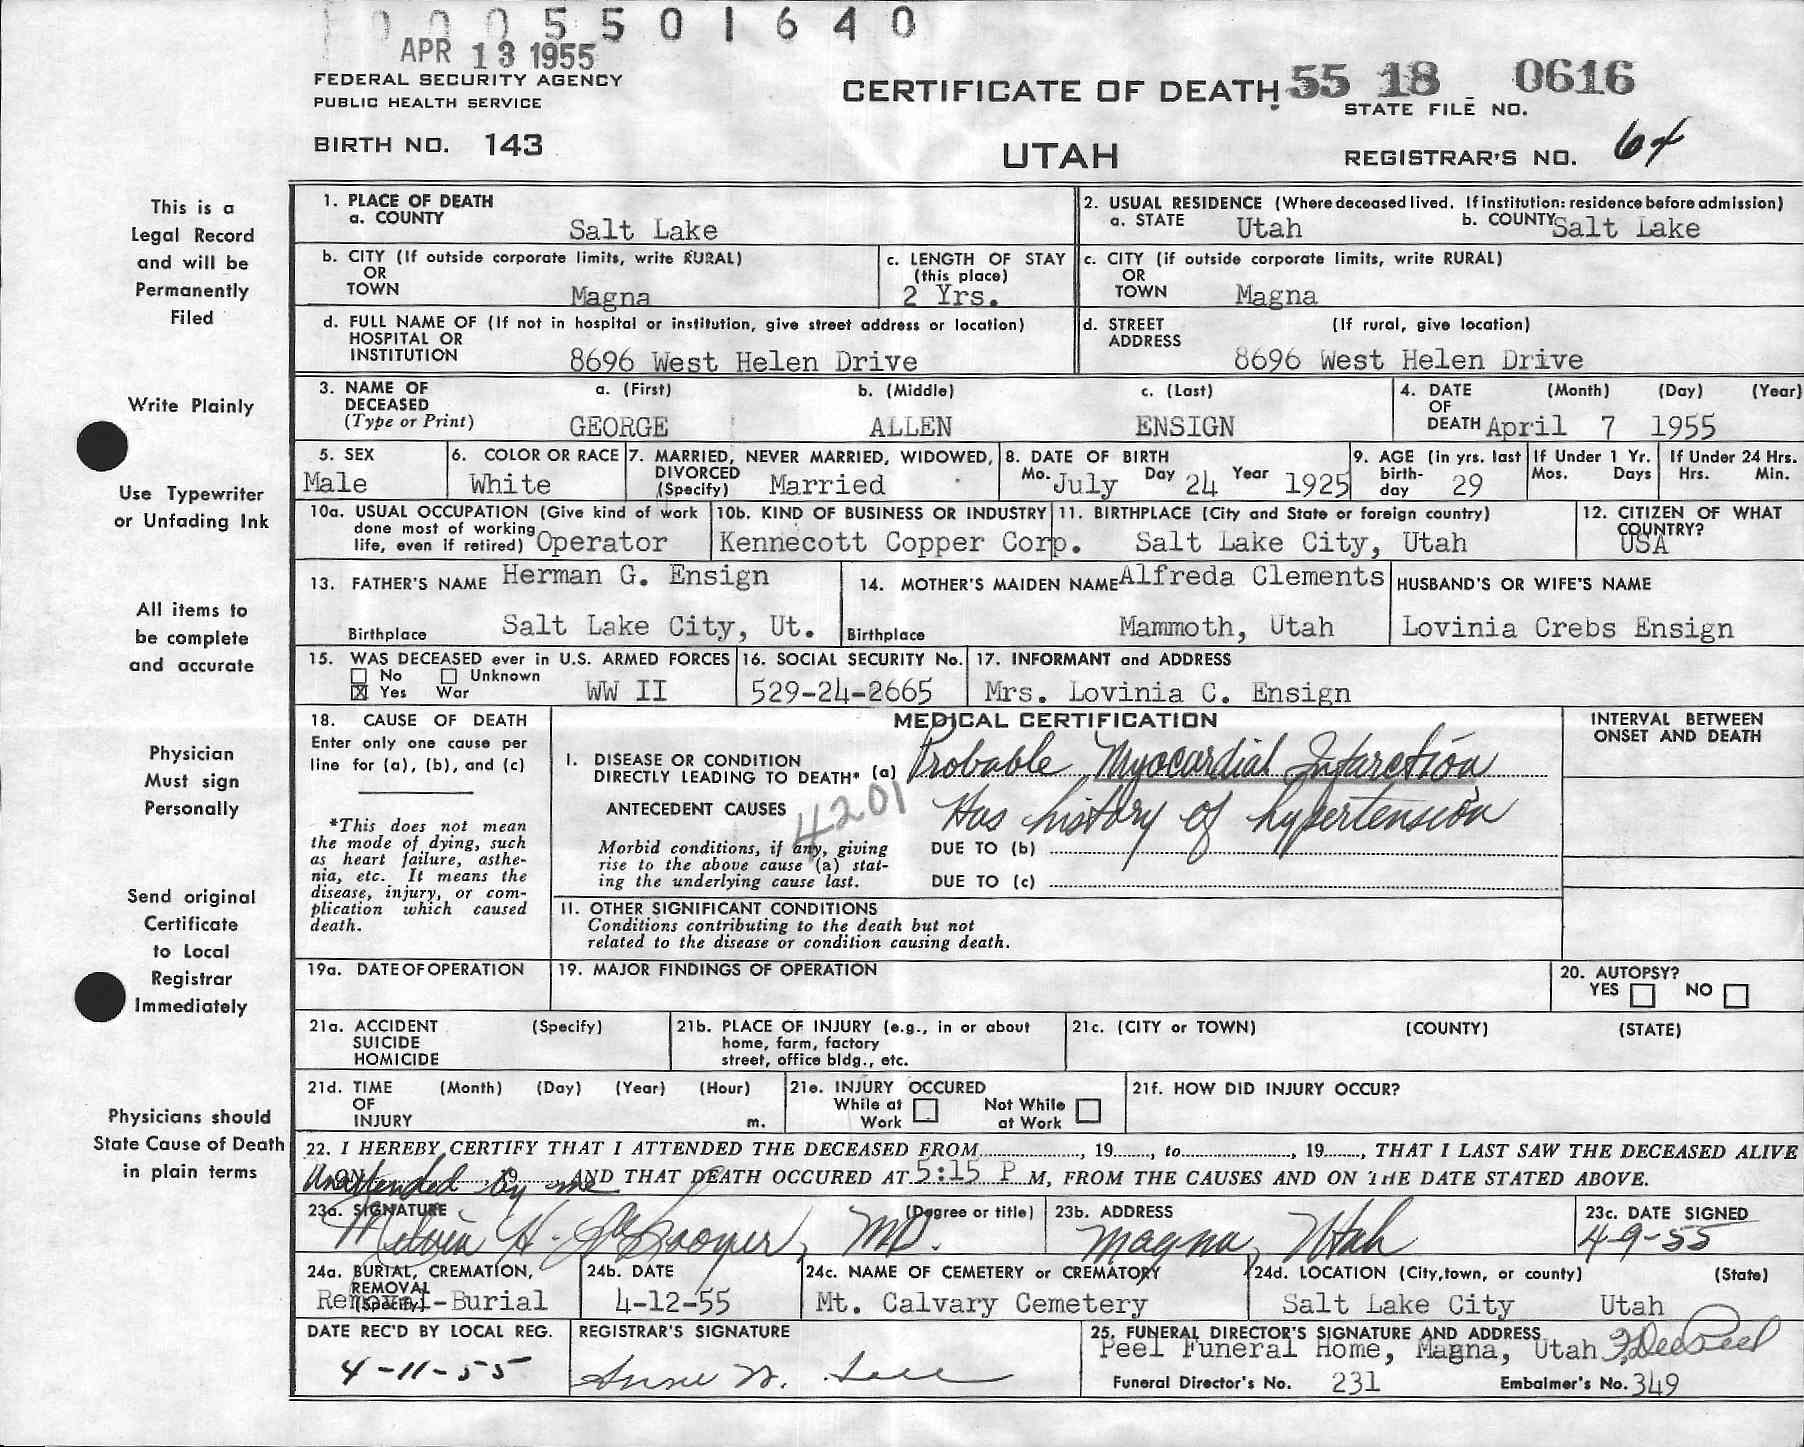 0005501640
APR 13 1955
FEDERAL SECURITY AGENCY
PUBLIC HEALTH SERVICE
CERTIFICATE OF DEATH
55 18 0616
STATE FILE NO.
BIRTH NO. 143
UTAH
REGISTRAR'S NO. 64
This is a
Legal Record
and will be
Permanently
Filed
Write Plainly
Use Typewriter
or Unfading Ink
All items to
be complete
and accurate
Physician
Must sign
Personally
Send original
Certificate
to Local
Registrar
Immediately
Physicians should
State Cause of Death
in plain terms
1. PLACE OF DEATH
a. COUNTY
Salt Lake
2. USUAL RESIDENCE (Where deceased lived. If institution: residence before admission)
a. STATE Utah b. COUNTY Salt Lake
b. CITY (If outside corporate limits, write RURAL)
OR
TOWN Magna
c. LENGTH OF STAY
(this place)
2 Yrs.
c. CITY (if outside corporate limits, write RURAL)
OR
TOWN Magna
d. FULL NAME OF (If not in hospital or institution, give street address or location)
HOSPITAL OR
INSTITUTION 8696 West Helen Drive
d. STREET (If rural, give location)
ADDRESS
8696 West Helen Drive
3. NAME OF a. (First) b. (Middle) c. (Last)
DECEASED
(Type or Print) GEORGE ALLEN ENSIGN
4. DATE (Month) (Day) (Year)
OF
DEATH April 7 1955
5. SEX
Male
6. COLOR OR RACE
White
7. MARRIED, NEVER MARRIED, WIDOWED,
DIVORCED
(Specify) Married
8. DATE OF BIRTH
Mo. July Day 24 Year 1925
9. AGE (in yrs. last
birth-
day 29
If Under 1 Yr.
Mos. Days
If Under 24 Hrs.
Hrs. Min.
10a. USUAL OCCUPATION (Give kind of work
done most of working
life, even if retired) Operator
10b. KIND OF BUSINESS OR INDUSTRY
Kennecott Copper Corp.
11. BIRTHPLACE (City and State or foreign country)
Salt Lake City, Utah
12. CITIZEN OF WHAT
COUNTRY?
USA
13. FATHER'S NAME Herman G. Ensign
Birthplace Salt Lake City, Ut.
14. MOTHER'S MAIDEN NAME Alfreda Clements
Birthplace Mammoth, Utah
HUSBAND'S OR WIFE'S NAME
Lovinia Crebs Ensign
15. WAS DECEASED ever in U.S. ARMED FORCES
No Unknown
Yes War WW II
16. SOCIAL SECURITY No.
529-24-2665
17. INFORMANT and ADDRESS
Mrs. Lovinia C. Ensign
18. CAUSE OF DEATH
Enter only one cause per
line for (a), (b), and (c)
*This does not mean
the mode of dying, such
as heart failure, asthe-
nia, etc. It means the
disease, injury, or com-
plication which caused
death.
MEDICAL CERTIFICATION
I. DISEASE OR CONDITION
DIRECTLY LEADING TO DEATH* (a) Probable Myocardial Infarction
ANTECEDENT CAUSES 4201 Has history of hypertension
Morbid conditions, if any, giving
rise to the above cause (a) stat-
ing the underlying cause last.
DUE TO (b)
DUE TO (c)
INTERVAL BETWEEN
ONSET AND DEATH
II. OTHER SIGNIFICANT CONDITIONS
Conditions contributing to the death but not
related to the disease or condition causing death.
19a. DATE OF OPERATION
19. MAJOR FINDINGS OF OPERATION
20. AUTOPSY?
YES NO
21a. ACCIDENT (Specify)
SUICIDE
HOMICIDE
21b. PLACE OF INJURY (e.g., in or about
home, farm, factory
street, office bldg., etc.
21c. (CITY or TOWN) (COUNTY) (STATE)
21d. TIME (Month) (Day) (Year) (Hour)
OF
INJURY m.
21e. INJURY OCCURED
While at Work Not While at Work
21f. HOW DID INJURY OCCUR?
22. I HEREBY CERTIFY THAT I ATTENDED THE DECEASED FROM, 19, to, 19, THAT I LAST SAW THE DECEASED ALIVE
Unattended by me AND THAT DEATH OCCURED AT 5:15 P M, FROM THE CAUSES AND ON THE DATE STATED ABOVE.
23a. SIGNATURE (Degree or title)
Melvin H. MD.
23b. ADDRESS
Magna, Utah
23c. DATE SIGNED
4-9-55
24a. BURIAL, CREMATION,
REMOVAL
(Specify)
Removal-Burial
24b. DATE
4-12-55
24c. NAME OF CEMETERY or CREMATORY
Mt. Calvary Cemetery
24d. LOCATION (City, town, or county) (State)
Salt Lake City Utah
DATE REC'D BY LOCAL REG.
4-11-55
REGISTRAR'S SIGNATURE
25. FUNERAL DIRECTOR'S SIGNATURE AND ADDRESS
Peel Funeral Home, Magna, Utah
Funeral Director's No. 231 Embalmer's No. 349